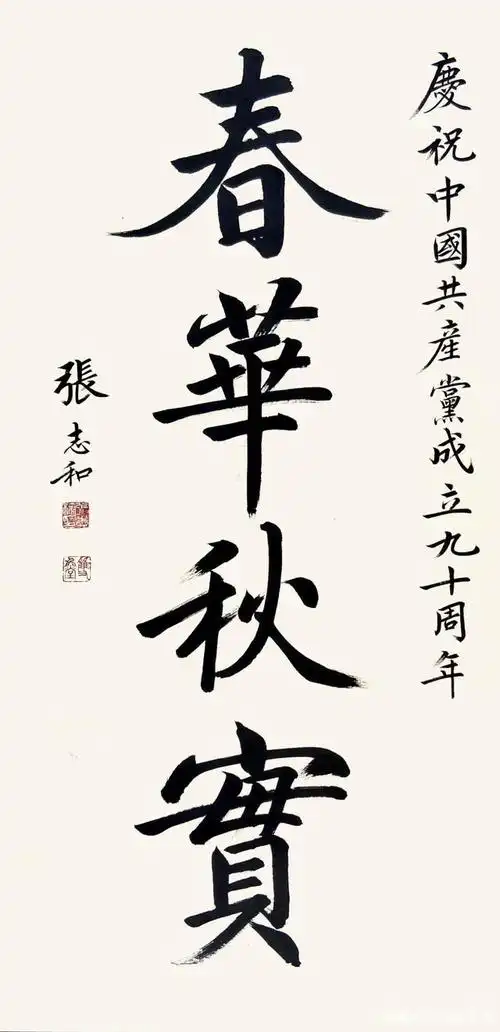 慶祝中國共產黨成立九十周年
春華秋實
張志和